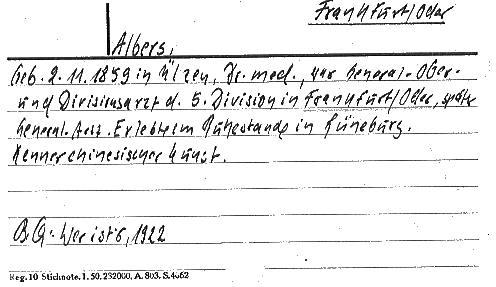 Frankfurt/Oder
Albers,
Geb. 2.11.1859 in Ülzen, Dr. med., war General-Ober-
und Divisionsarzt d. 5. Division in Frankfurt/Oder, später
General-Arzt. Er lebte im Ruhestande in Lüneburg.
Kenner chinesischer Kunst.
B.Q. Wer ist's, 1922
Reg. 10 Stichnote. 1. 50. 232000. A. 803. S. 4062